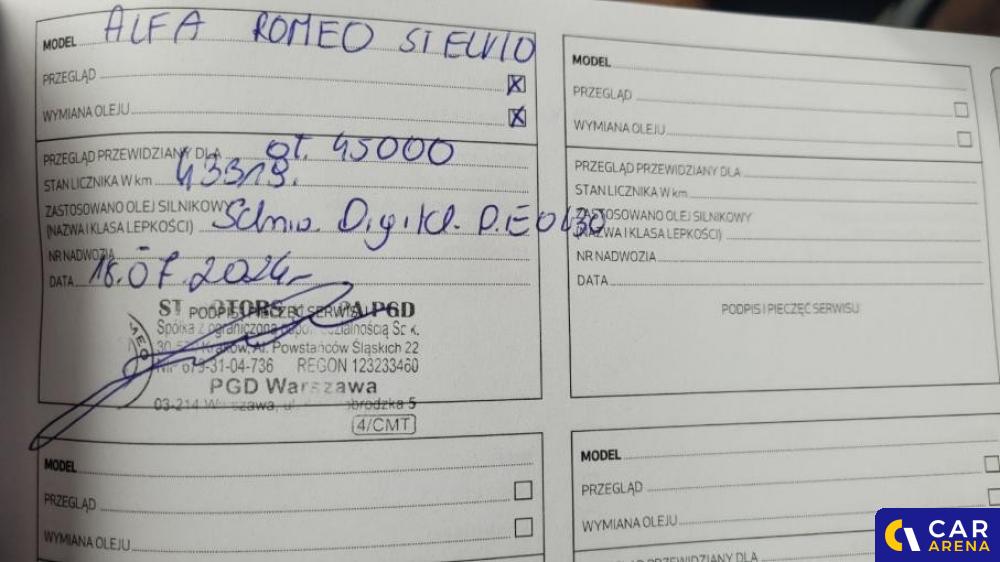 MODEL ALFA ROMEO STELVIO
PRZEGLĄD X
WYMIANA OLEJU X
PRZEGLĄD PRZEWIDZIANY DLA 45000
STAN LICZNIKA W km 43319.
ZASTOSOWANO OLEJ SILNIKOWY
(NAZWA I KLASA LEPKOŚCI)
NR NADWOZIA
DATA 18.07.2024
PODPIS I PIECZĘĆ SERWISU
Spółka z ograniczoną Sp. k.
Kraków, Al. Powstańców Śląskich 22
NIP 679-31-04-736 REGON 123233460
PGD Warszawa
03-214 Warszawa, 5
4/CMT
MODEL
PRZEGLĄD
WYMIANA OLEJU
PRZEGLĄD PRZEWIDZIANY DLA
STAN LICZNIKA W km
ZASTOSOWANO OLEJ SILNIKOWY
(NAZWA I KLASA LEPKOŚCI)
NR NADWOZIA
DATA
PODPIS I PIECZĘĆ SERWISU
MODEL
PRZEGLĄD
WYMIANA OLEJU
MODEL
PRZEGLĄD
WYMIANA OLEJU
PRZEGLĄD PRZEWIDZIANY DLA
CAR
ARENA